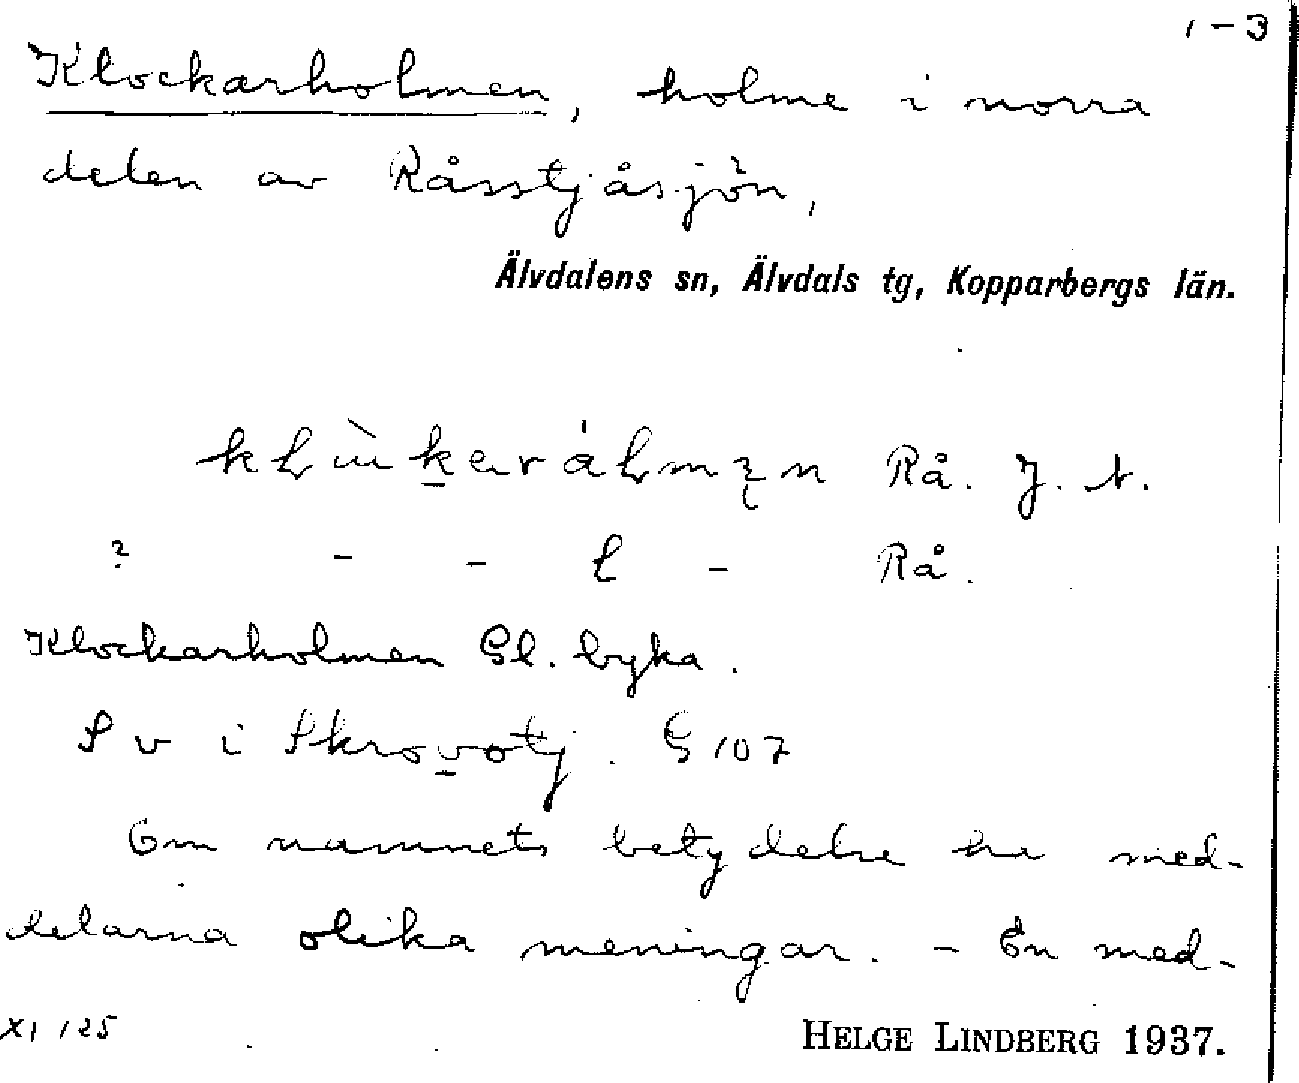 1-3
Klockarholmen, holme i norra
delen av Råsstjåsjön,
Älvdalens sn, Älvdals tg, Kopparbergs län.
Rå. J. A.
? - - l - Rå.
Klockarholmen Gl. byka.
S v i Skrovotj. G 107
Om namnets betydelse ha med-
delarna olika meningar. - En med-
XI 125
HELGE LINDBERG 1937.